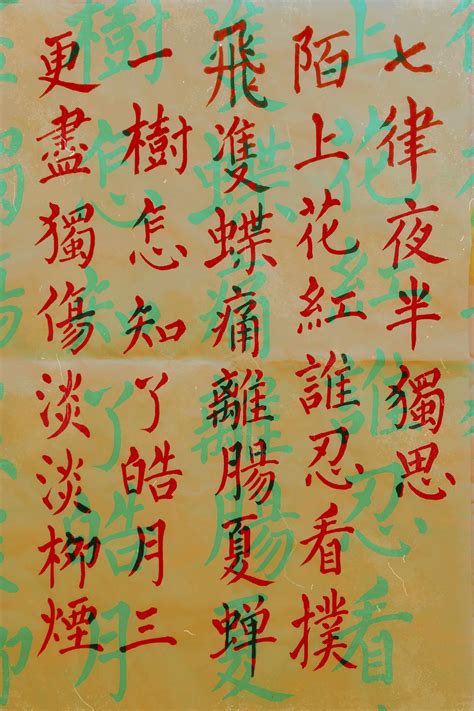 七律夜半獨思
陌上花紅誰忍看撲
飛雙蝶痛離腸夏蝉
一樹怎知了皓月三
更盡獨傷淡淡柳煙